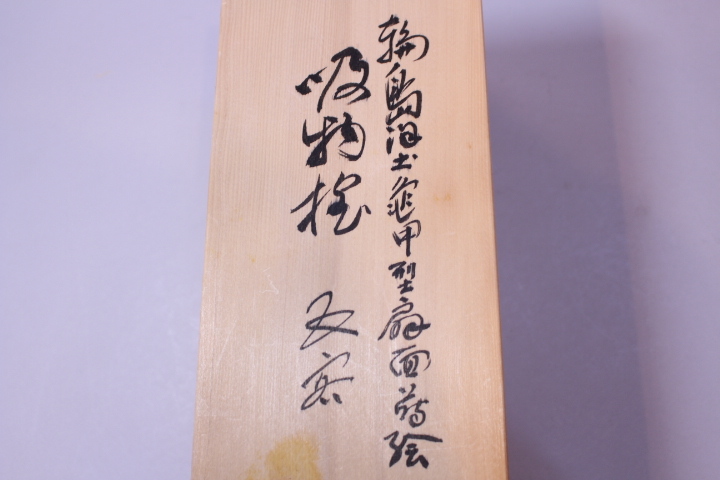 輪島沈金亀甲型扇面蒔絵
吸物椀 五客